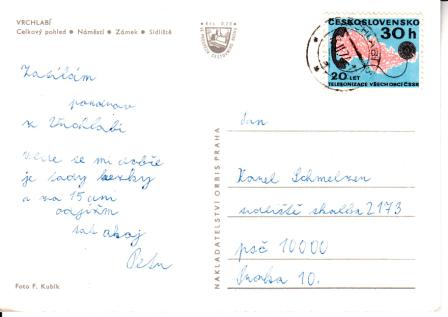 VRCHLABÍ
Celkový pohled • Náměstí • Zámek • Sídliště
Zasílám
pozdrav
z Vrchlabí
vede se mi dobře
je tady hezky
a za 15 dní
odjíždím
tak ahoj
Petr
Foto F. Kubík
NAKLADATELSTVÍ ORBIS PRAHA
Kčs 0,70
ČESKOSLOVENSKO
30 h
20 LET
TELEFONIZACE VŠECH OBCÍ ČSSR
VRCHLABÍ
Pan
Karel Schmelzer
sídliště skalka 2173
psč 10000
Praha 10.